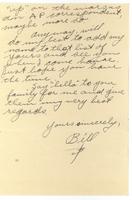 up on the margaz
din AP correspondent,
maybe more do.
Anyway, will
do my best to add my
name to that list of
yours and see you
when I come home.
Just hope you have
the time.
Say "hello" to your
family for me and give
them my very best
regards.
Yours sincerely,
Bill